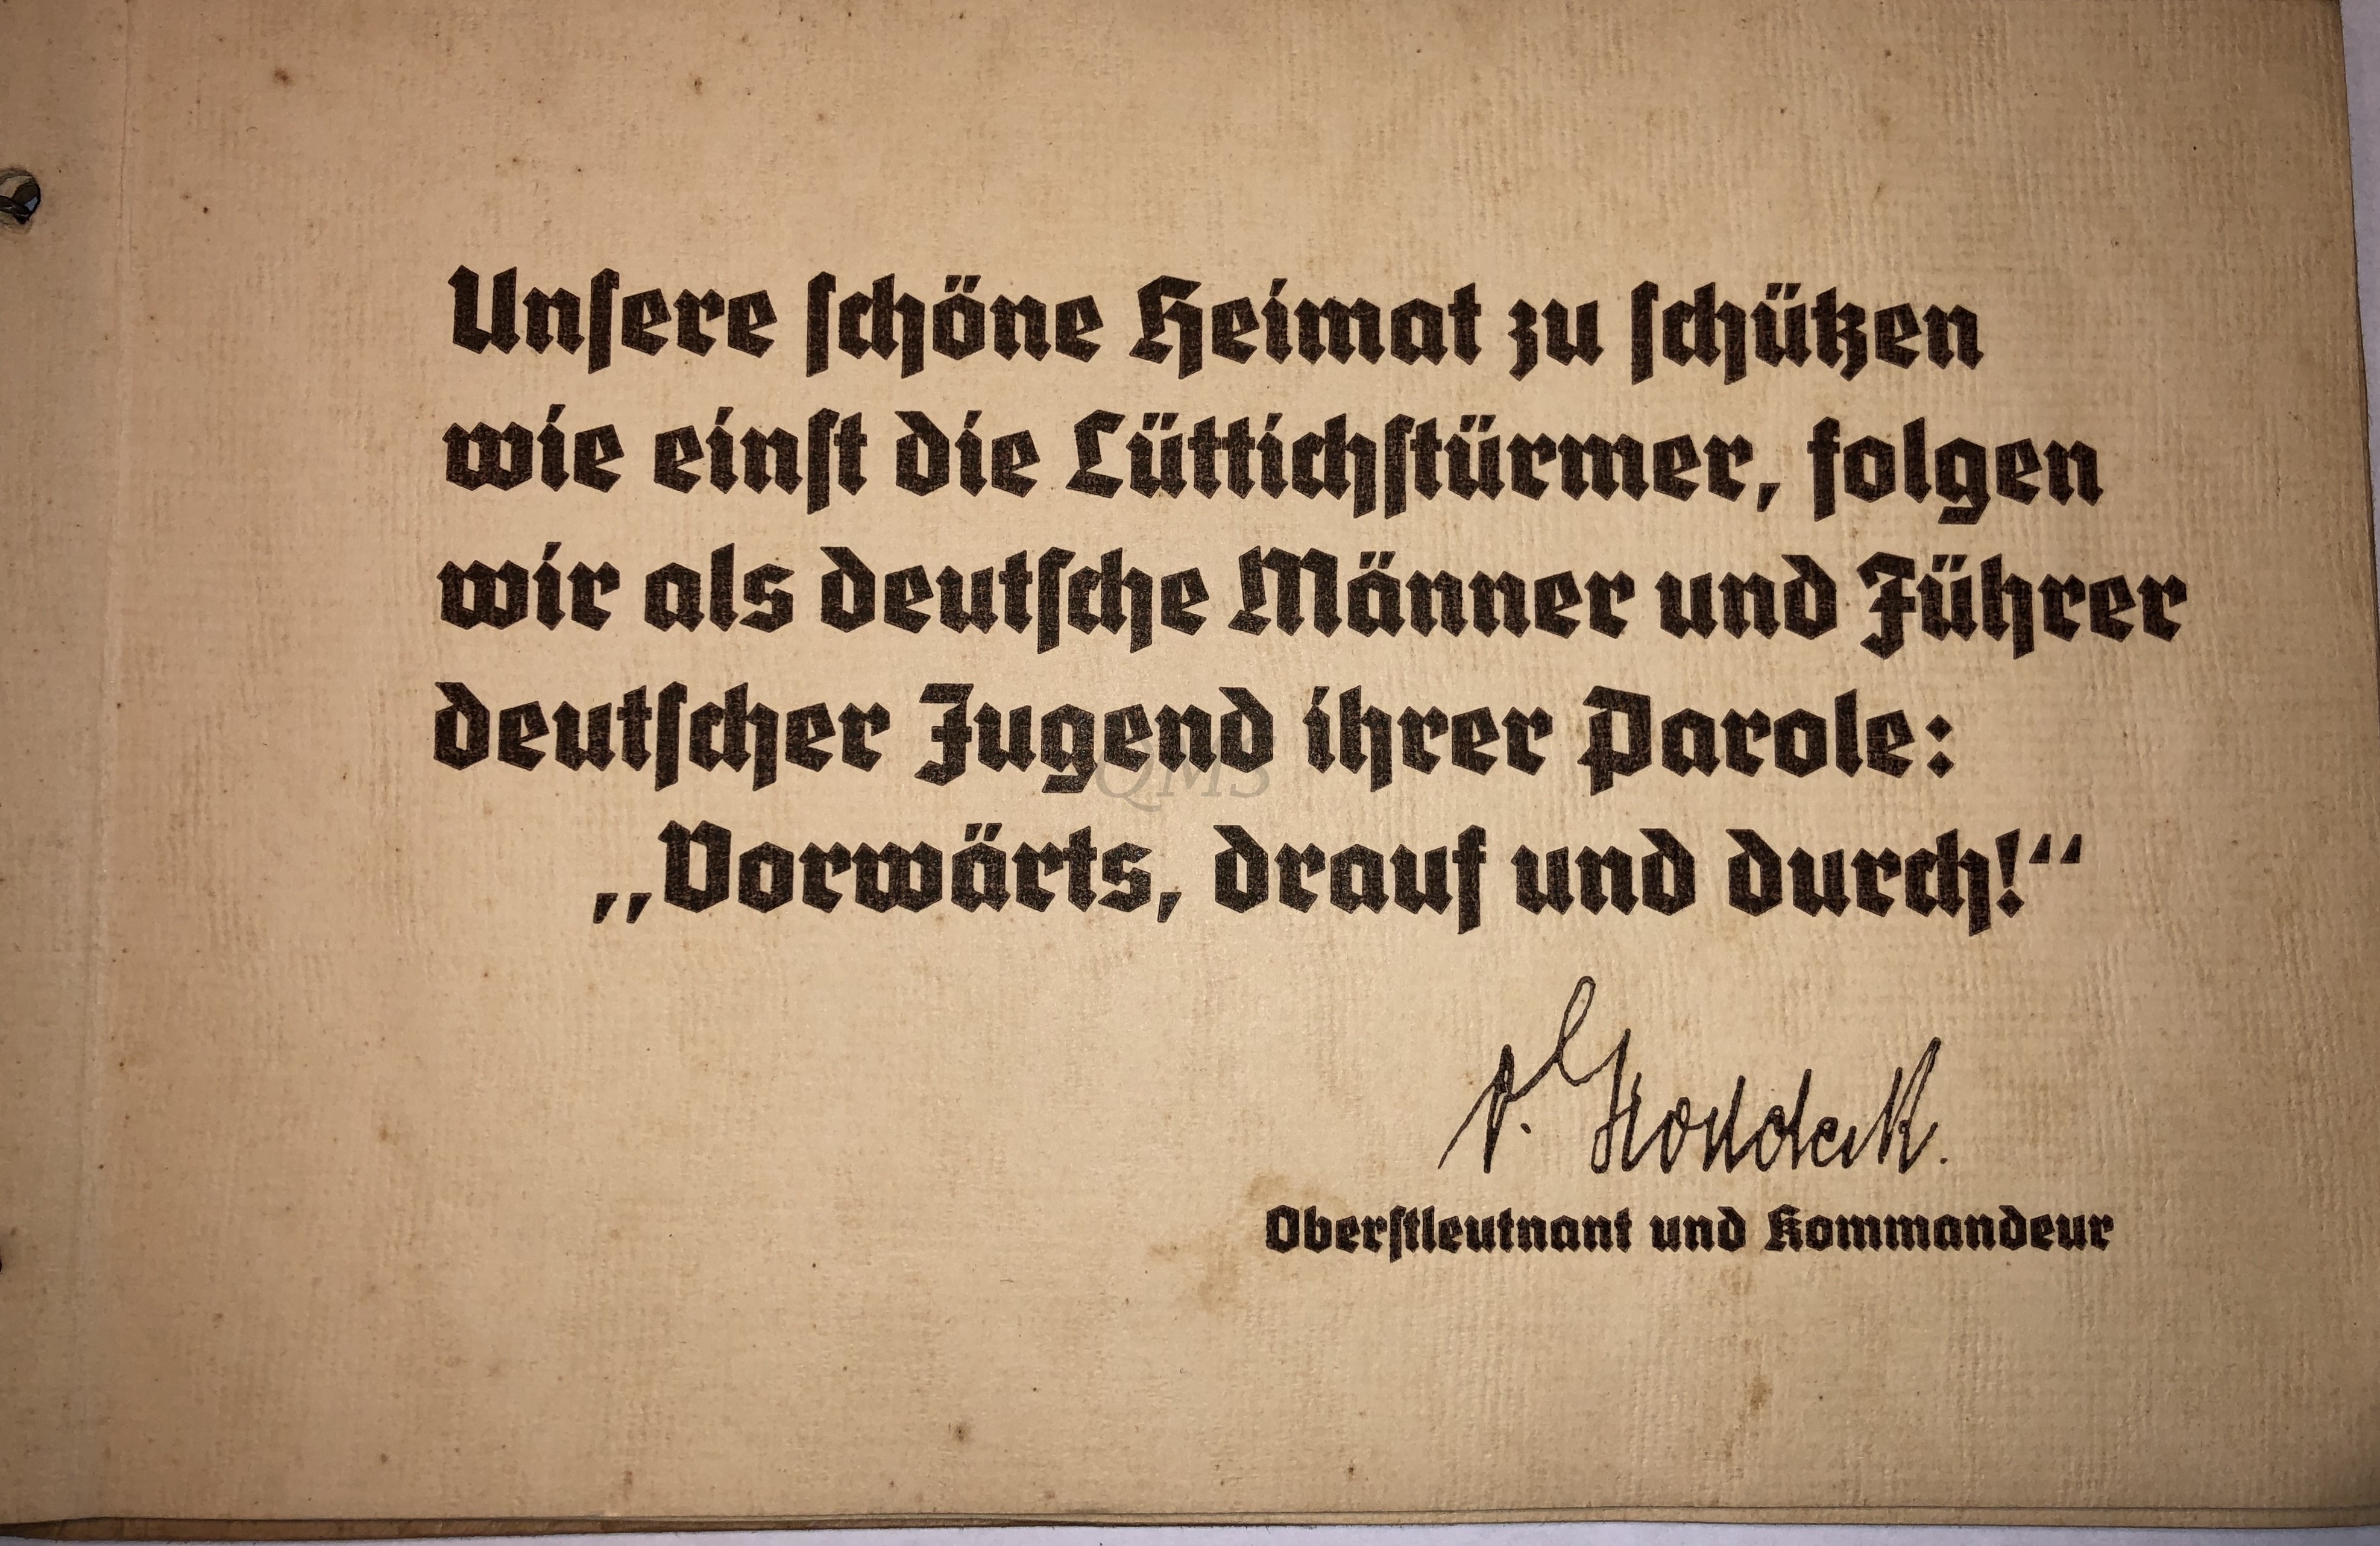 Unſere ſchöne Heimat zu ſchützen
wie einſt die Lüttichſtürmer, folgen
wir als deutſche Männer und Führer
deutſcher Jugend ihrer Parole:
„Vorwärts, drauf und durch!“
QMS
v.
Oberſtleutnant und Kommandeur